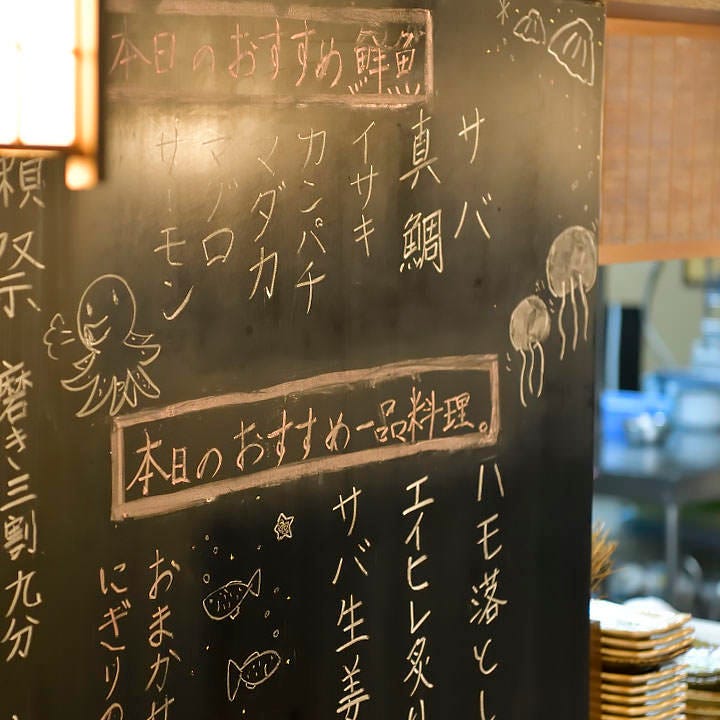 本日のおすすめ鮮魚
サバ
真鯛
イサキ
カンパチ
マダカ
マグロ
サーモン
本日のおすすめ一品料理。
ハモ落とし
エイヒレ炙り
サバ生姜
おまかせ
にぎりの
獺祭 磨き三割九分